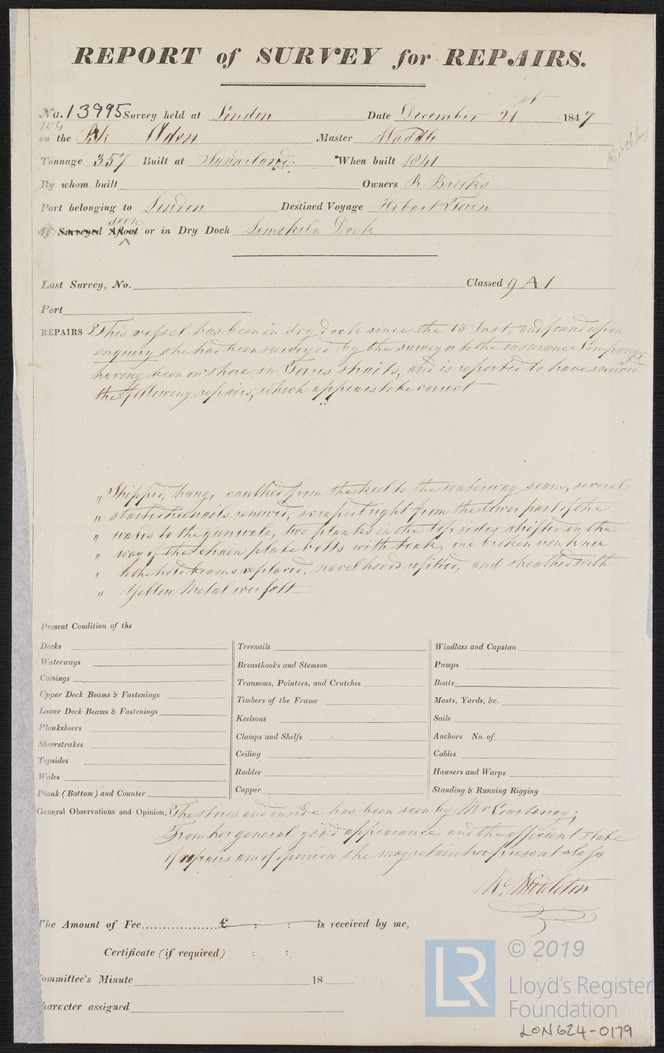 REPORT of SURVEY for REPAIRS.
No. 13995 Survey held at London Date December 21st 1847
104
on the Bk Aden Master Waddle
Tonnage 357 Built at Sunderland When built 1841
By whom built Owners R Brooks
Port belonging to London Destined Voyage Hobart Town
seen
If Surveyed Afloat or in Dry Dock Limekiln Dock
Last Survey, No. Classed 9 A1
Port
REPAIRS This vessel has been in dry dock since the 13 Inst, and found upon
enquiry she had been surveyed by the surveyor to the insurance Company
having been on shore in Torres straits, and is reported to have received
the following repairs, which appears to be correct
" Stripped, hung, caulked from the keel to the waterway seam, several
" started treenails renewed, scraped bright from the lower part of the
" wales to the gunwale, two planks in the topsides shifted in the
" way of the chain plate bolts with teak, one broken iron knee
" to the hold beams replaced, navel hoods refitted, and sheathed with
" Yellow Metal over felt
Present Condition of the
Decks
Waterways
Comings
Upper Deck Beams & Fastenings
Lower Deck Beams & Fastenings
Planksheers
Sheerstrakes
Topsides
Wales
Plank (Bottom) and Counter
Treenails
Breasthooks and Stemson
Transoms, Pointers, and Crutches
Timbers of the Frame
Keelsons
Clamps and Shelfs
Ceiling
Rudder
Copper
Windlass and Capstan
Pumps
Boats
Masts, Yards, &c.
Sails
Anchors No. of
Cables
Hawsers and Warps
Standing & Running Rigging
General Observations and Opinion, The stores and inside has been seen by Mr Courtenay;
From her general good appearance and the efficient state
of repairs am of opinion she may retain her present class
The Amount of Fee..................£ : : is received by me,
Certificate (if required) : :
Committee's Minute 18
Character assigned
LR © 2019
Lloyd's Register
Foundation
LON624-0179